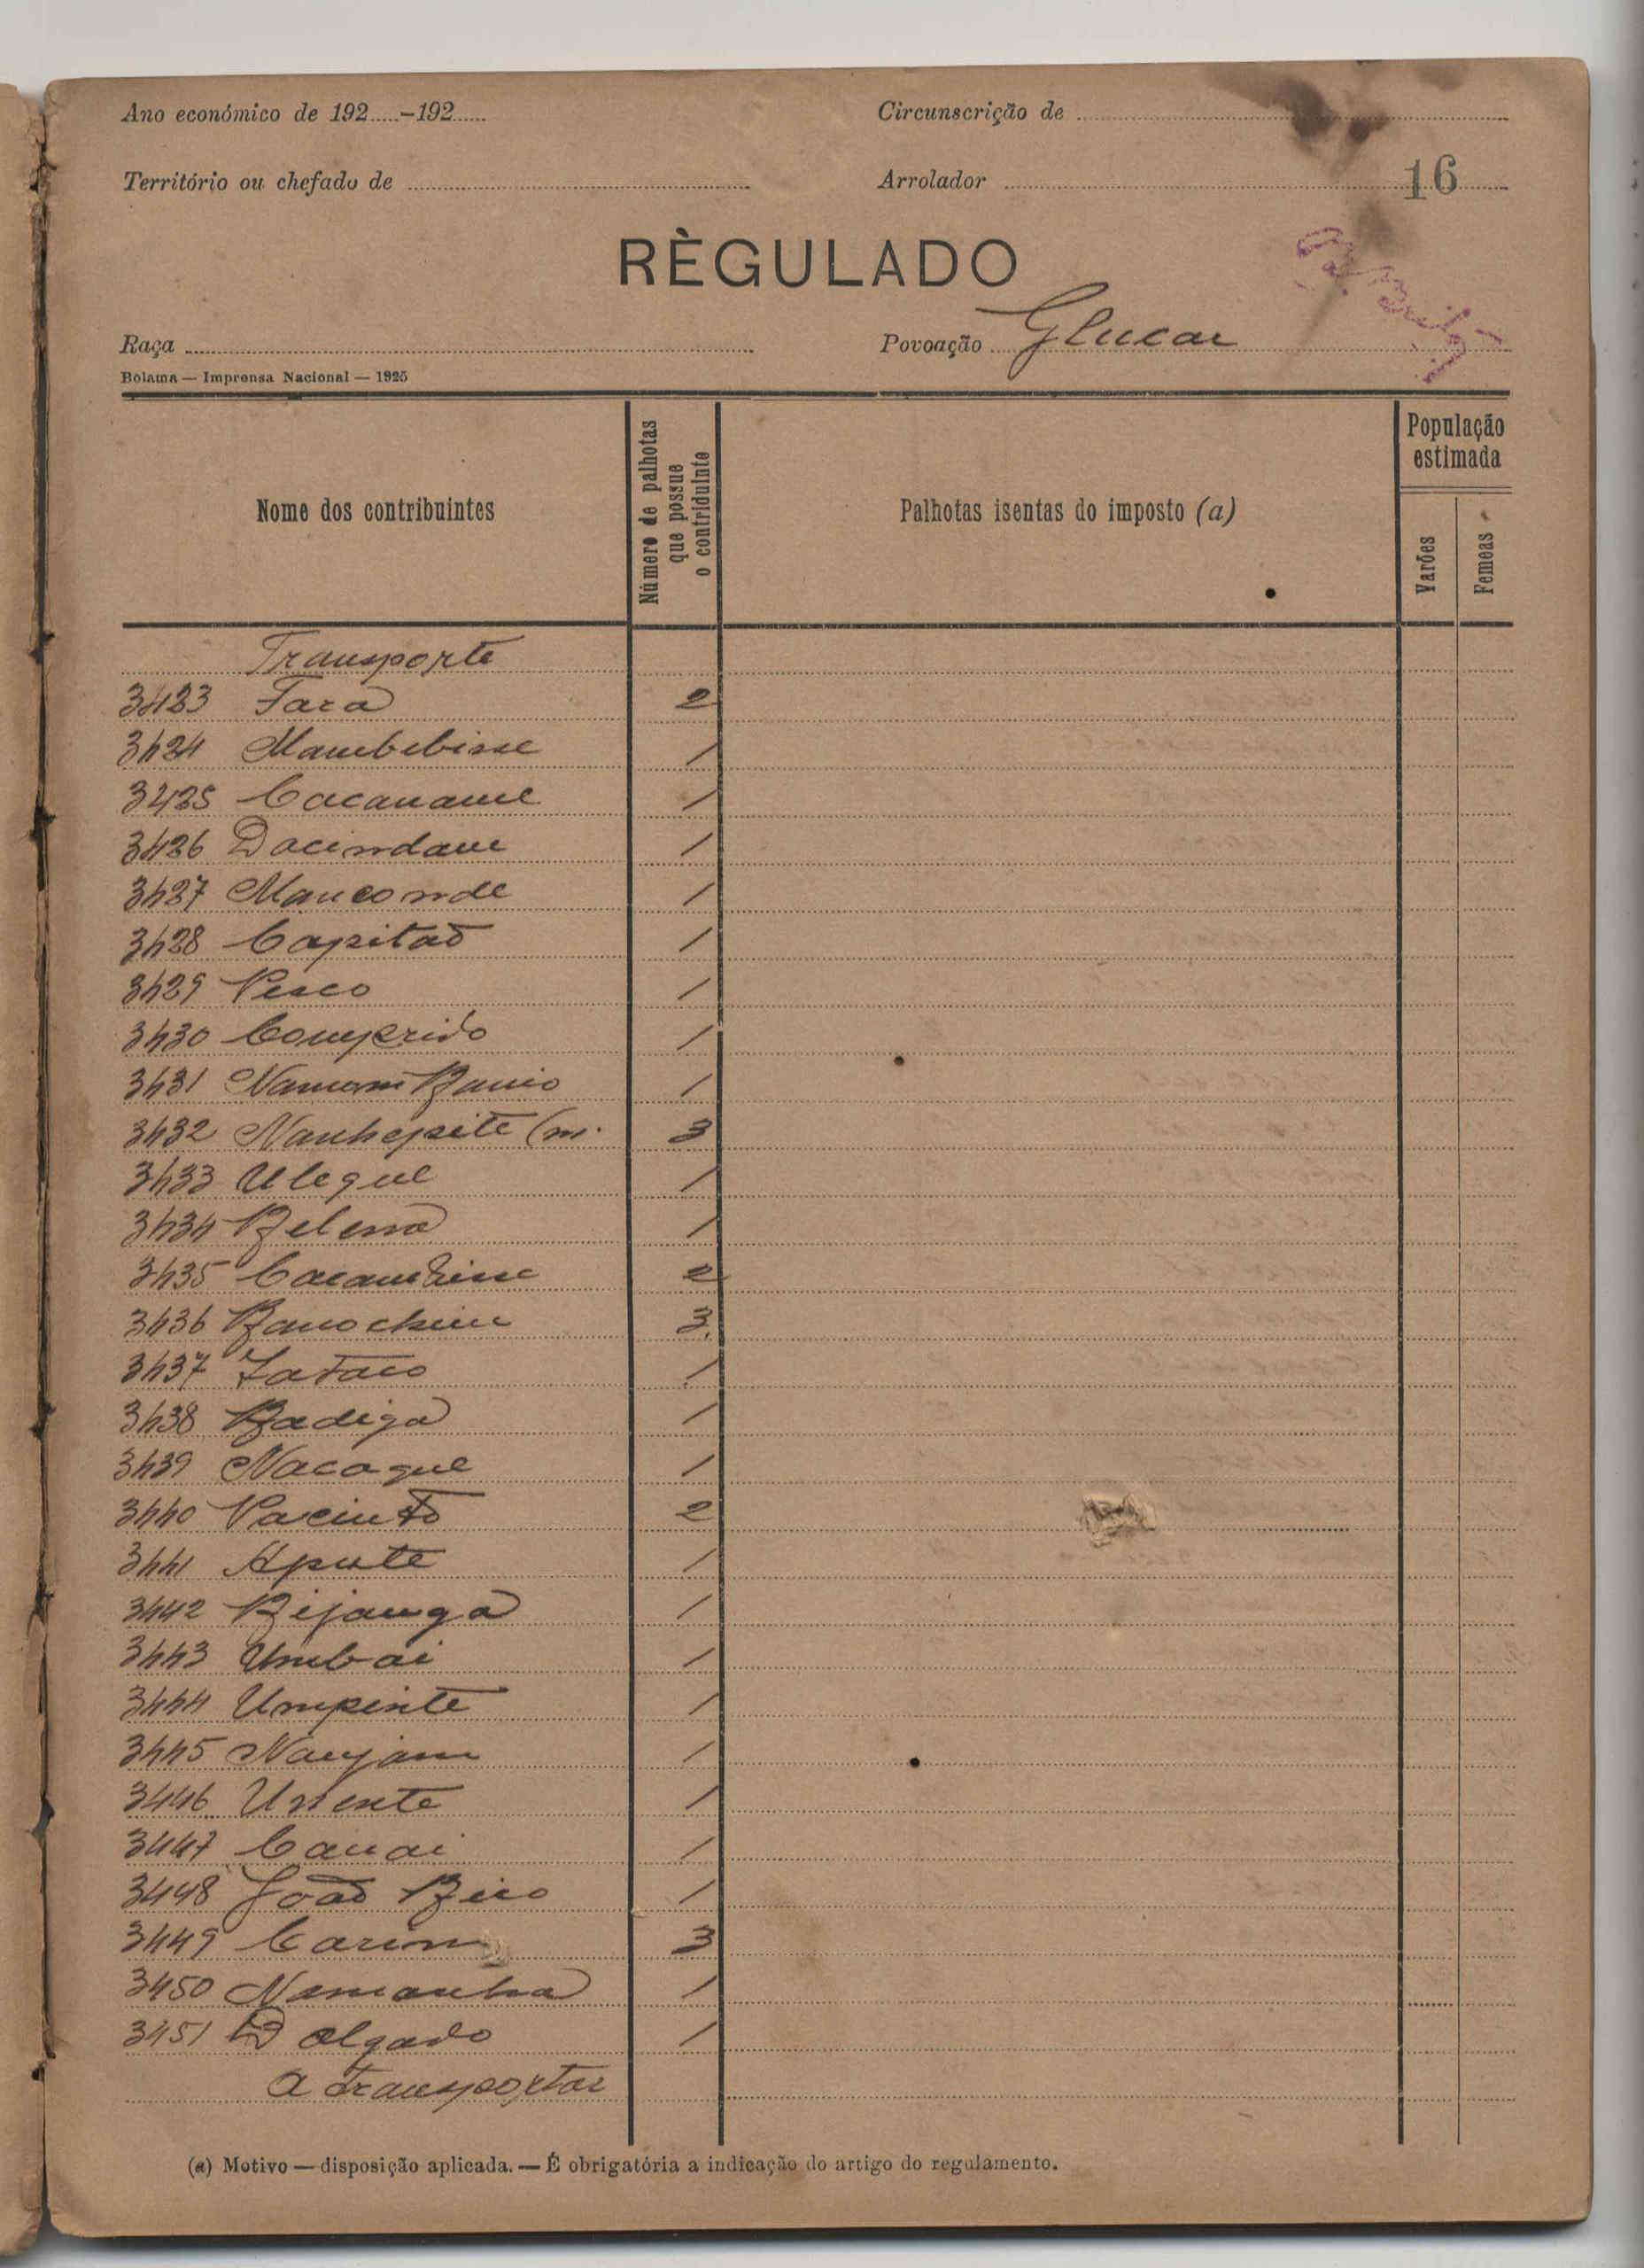 Ano económico de 192.....-192......
Circunscrição de
Território ou chefado de
Arrolador
16
RÈGULADO
Raça
Povoação Glucar
Bolama — Imprensa Nacional — 1925
Nome dos contribuintes
Número de palhotas que possue o contriduinte
Palhotas isentas do imposto (a)
População estimada
Varões
Femeas
Transporte
3423 Fara 2
3424 Mambebisse 1
3425 Cacaname 1
3426 1
3427 Manconde 1
3428 Capitão 1
3429 1
3430 Comprido 1
3431 1
3432 Nanhepite (m. 3
3433 Ulegue 1
3434 Belena 1
3435 2
3436 3
3437 1
3438 Badiga 1
3439 Nacague 1
3440 2
3441 Apute 1
3442 Bijanga 1
3443 Umbai 1
3444 Umpinte 1
3445 1
3446 1
3447 1
3448 João Bico 1
3449 3
3450 1
3451 Dolgado 1
A transportar
(a) Motivo — disposição aplicada. — É obrigatória a indicação do artigo do regulamento.